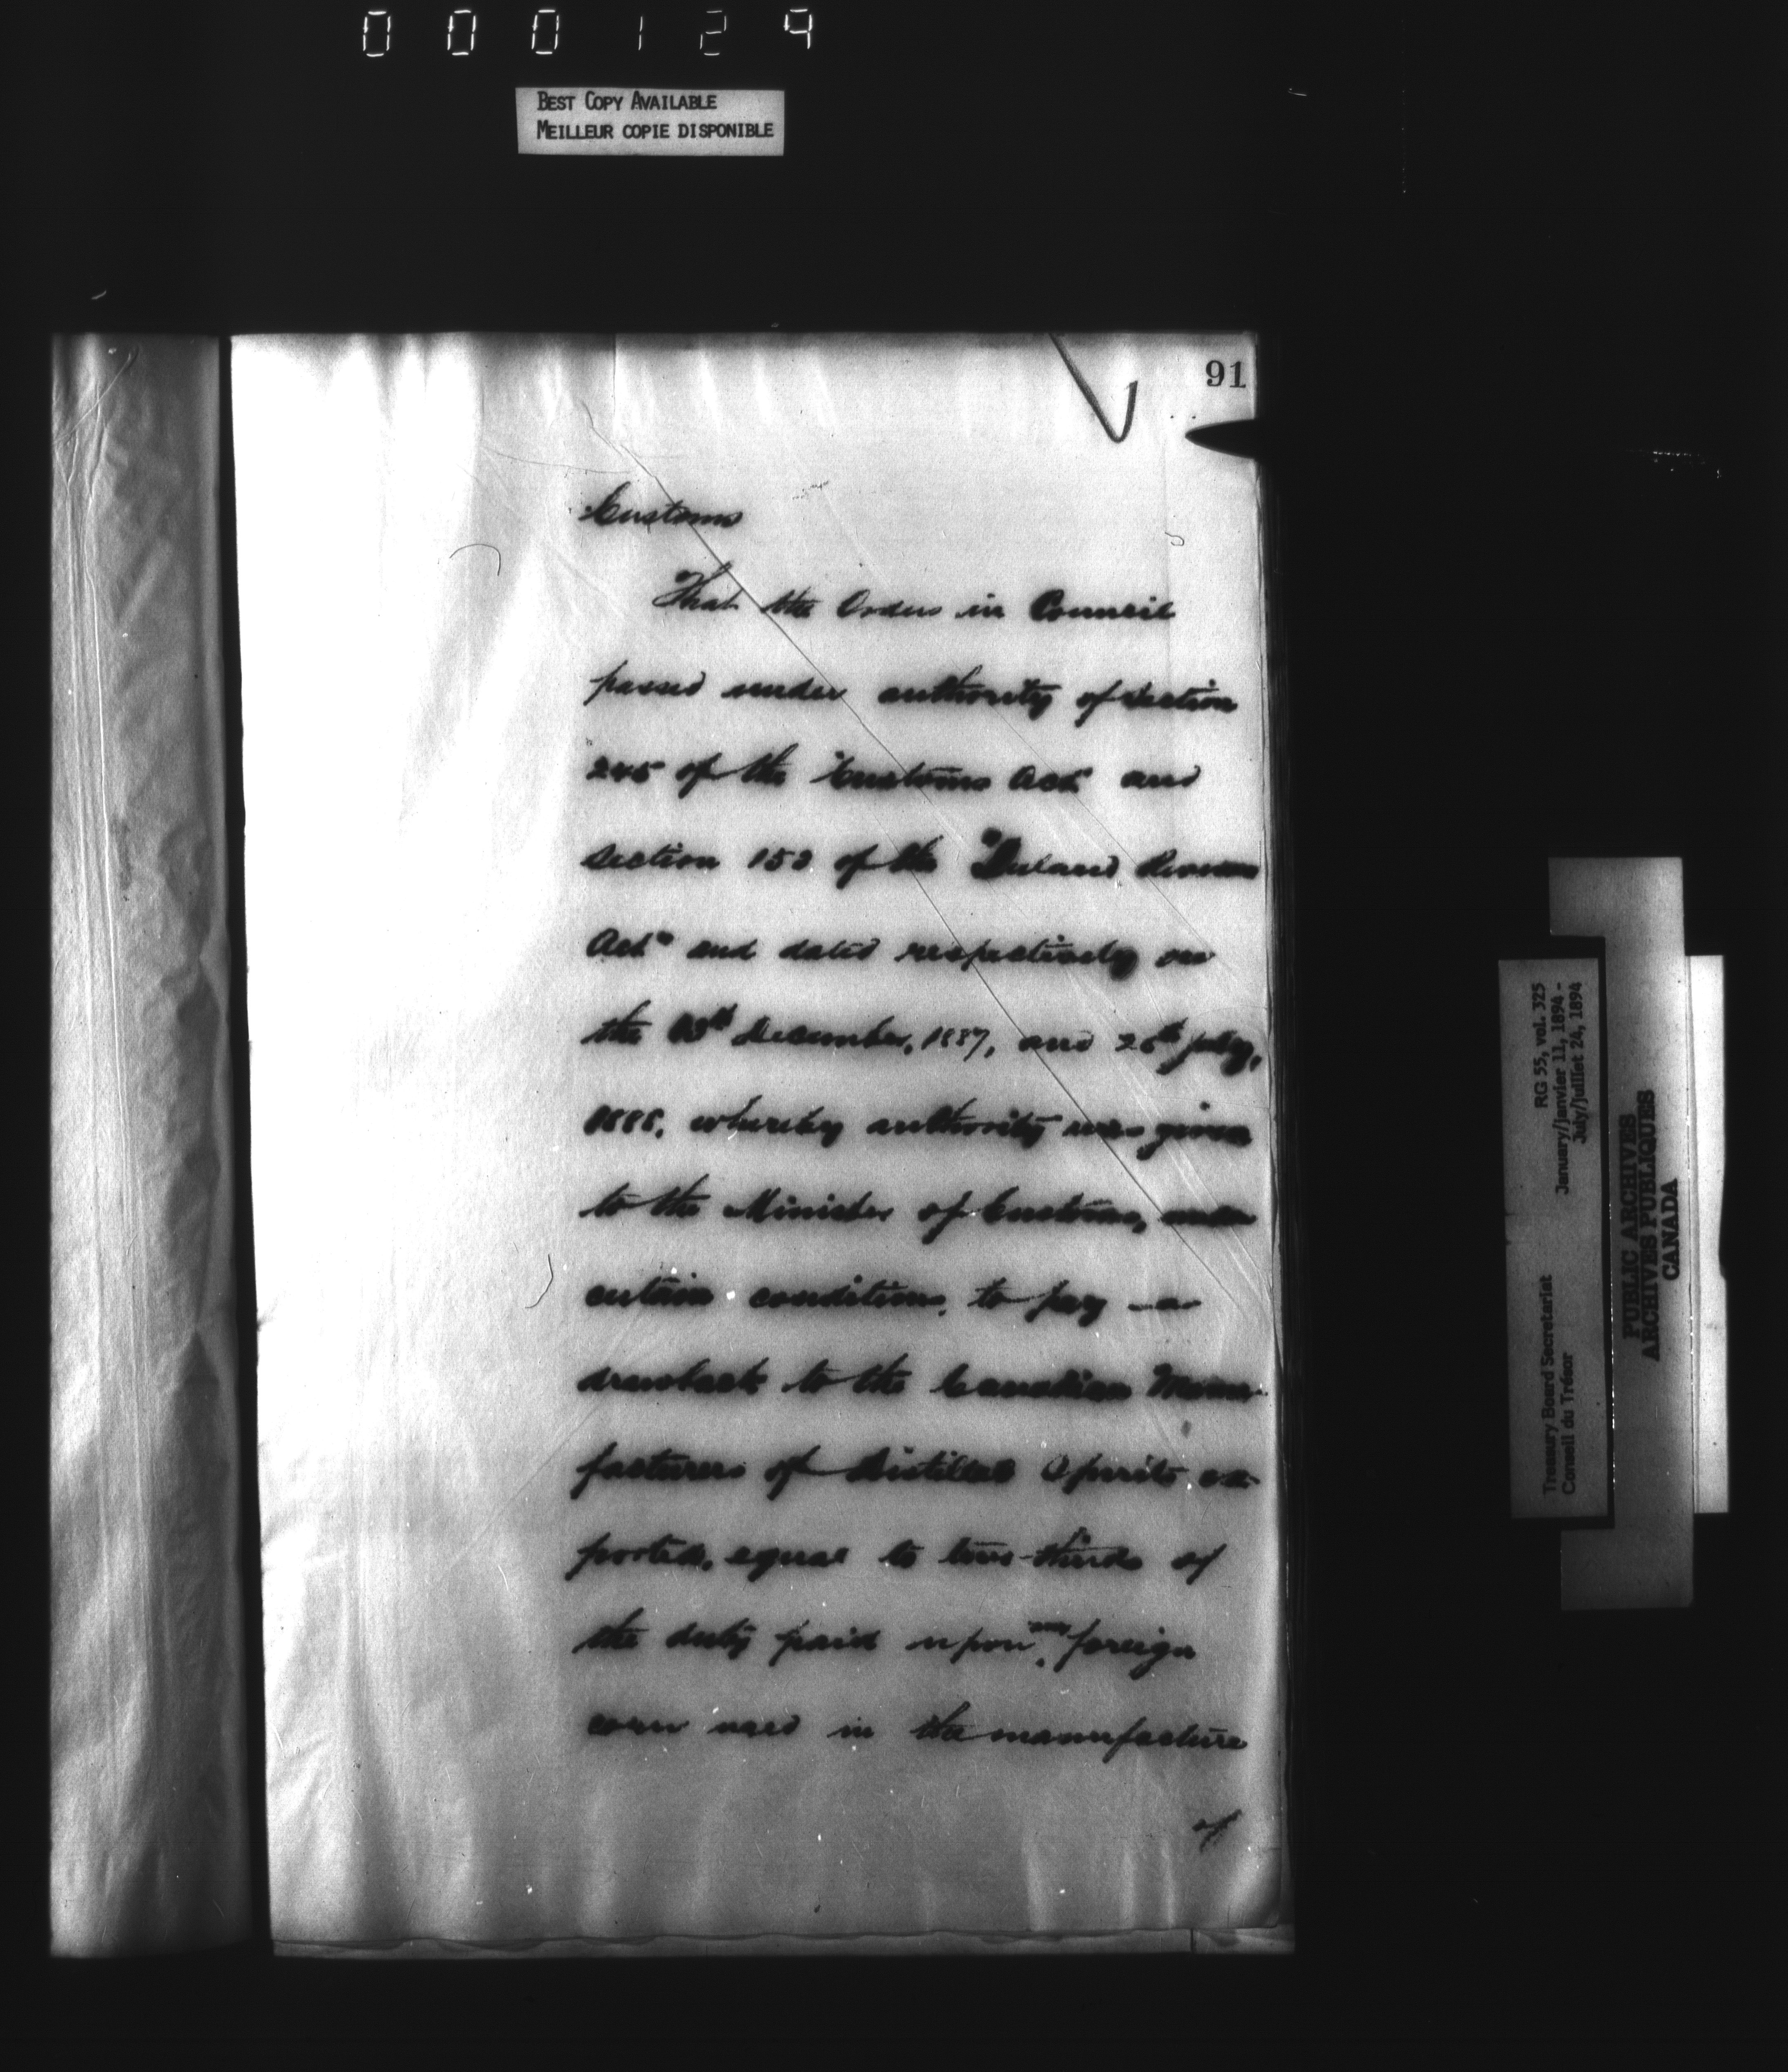 000129
BEST COPY AVAILABLE
MEILLEUR COPIE DISPONIBLE
91
Customs
That the Orders in Council
passed under authority of Section
245 of the "Customs Act" and
Section 152 of the "Inland Revenue
Act" and dated respectively on
the December, 1887, and 26th July,
1888, whereby authority was given
to the Minister of Customs, under
certain conditions, to pay a
drawback to the Canadian Manu-
facturers of Distilled Spirits ex-
ported, equal to two-thirds of
the duty paid upon any foreign
corn used in the manufacture
of
RG 55, vol. 325
January/janvier 11, 1894 -
July/juillet 24, 1894
Treasury Board Secretariat
Conseil du Trésor
PUBLIC ARCHIVES
ARCHIVES PUBLIQUES
CANADA